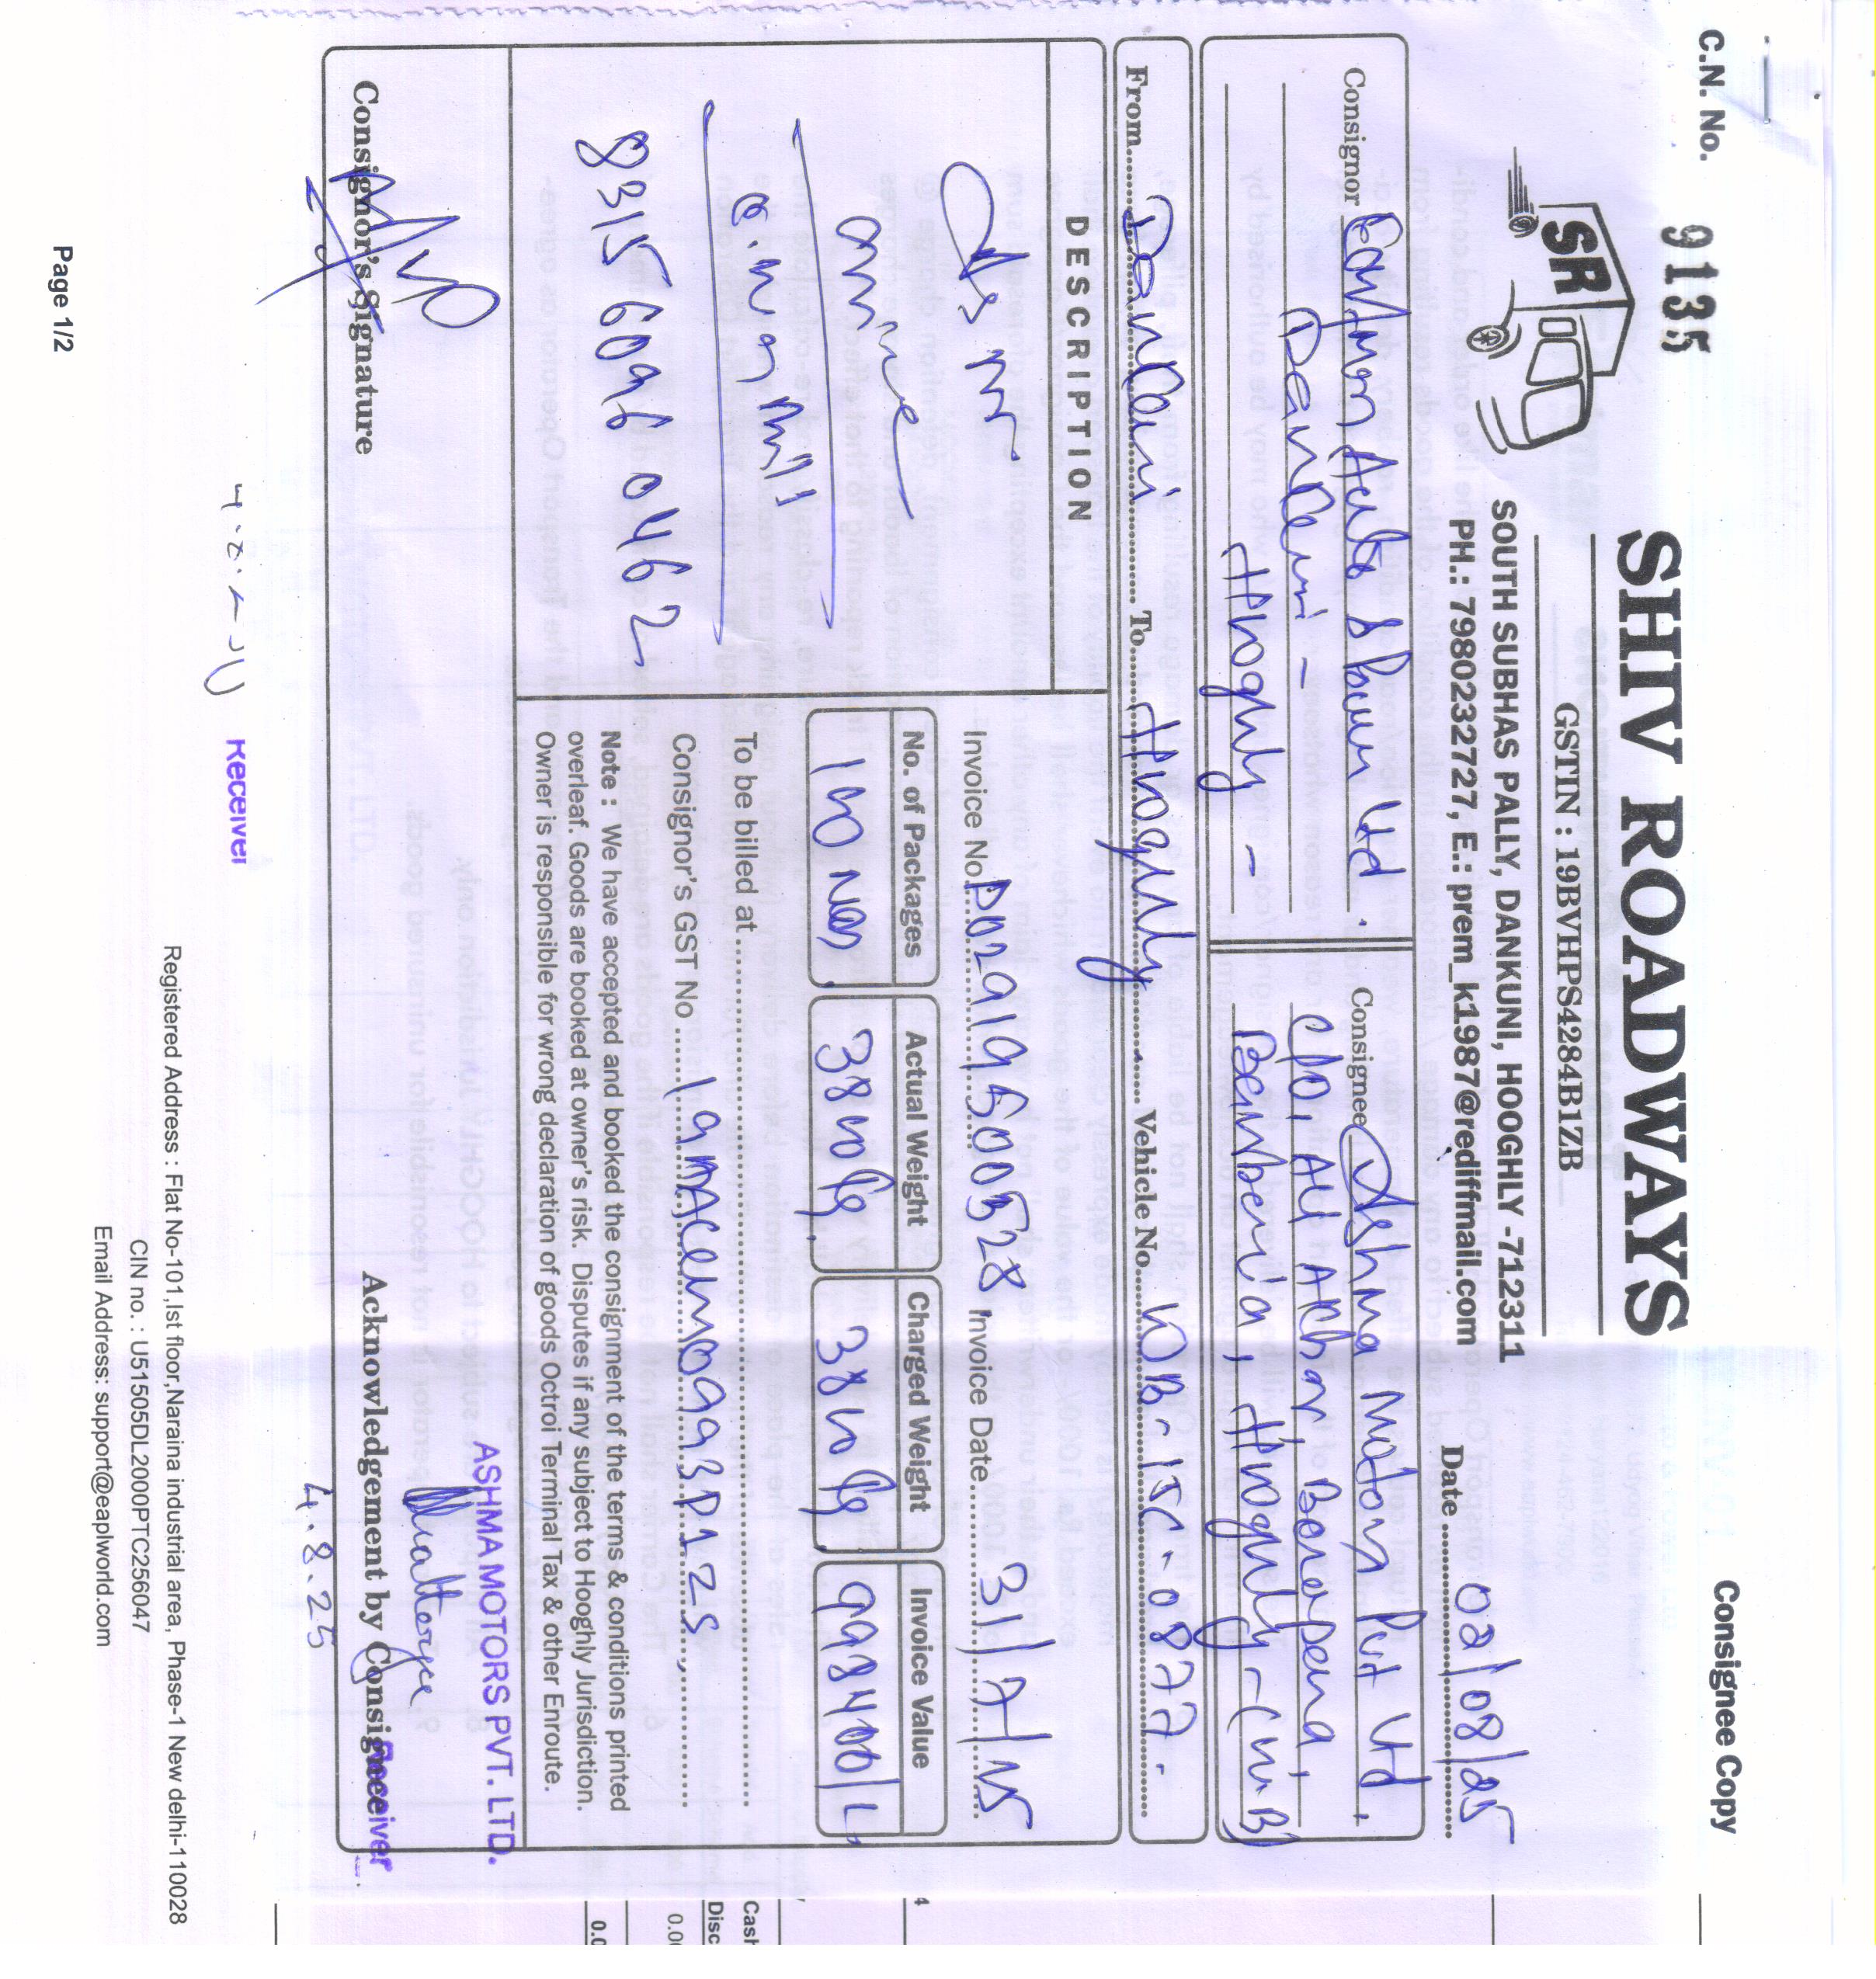 C.N. No. 9135
Consignee Copy
SR
SHIV ROADWAYS
GSTIN : 19BVHPS4284B1ZB
SOUTH SUBHAS PALLY, DANKUNI, HOOGHLY -712311
PH.: 7980232727, E.: prem_k1987@rediffmail.com
Date 02/08/25
Consignor Eastman Auto & Power Ltd.
Dankuni -
Hooghly -
Consignee Ashma Motors Pvt Ltd,
C/O, Ali Akbar, Benapena,
Banberia, Hooghly - (W.B)
From Dankuni To Hooghly Vehicle No. WB-15C-0877.
DESCRIPTION
Invoice No. D02919500528 Invoice Date 31/7/25
No. of Packages
Actual Weight
Charged Weight
Invoice Value
380 kg.
380 kg
998400/-
e.way bill
8315 6096 0462
To be billed at
Consignor's GST No 19AACEM0993D1ZS
Note : We have accepted and booked the consignment of the terms & conditions printed
overleaf. Goods are booked at owner's risk. Disputes if any subject to Hooghly Jurisdiction.
Owner is responsible for wrong declaration of goods Octroi Terminal Tax & other Enroute.
ASHMA MOTORS PVT. LTD.
Consignor's Signature
Acknowledgement by Consignee
Receiver
4.8.25
Receiver
Registered Address : Flat No-101,Ist floor,Naraina industrial area, Phase-1 New delhi-110028
CIN no. : U51505DL2000PTC256047
Email Address: support@eaplworld.com
Page 1/2